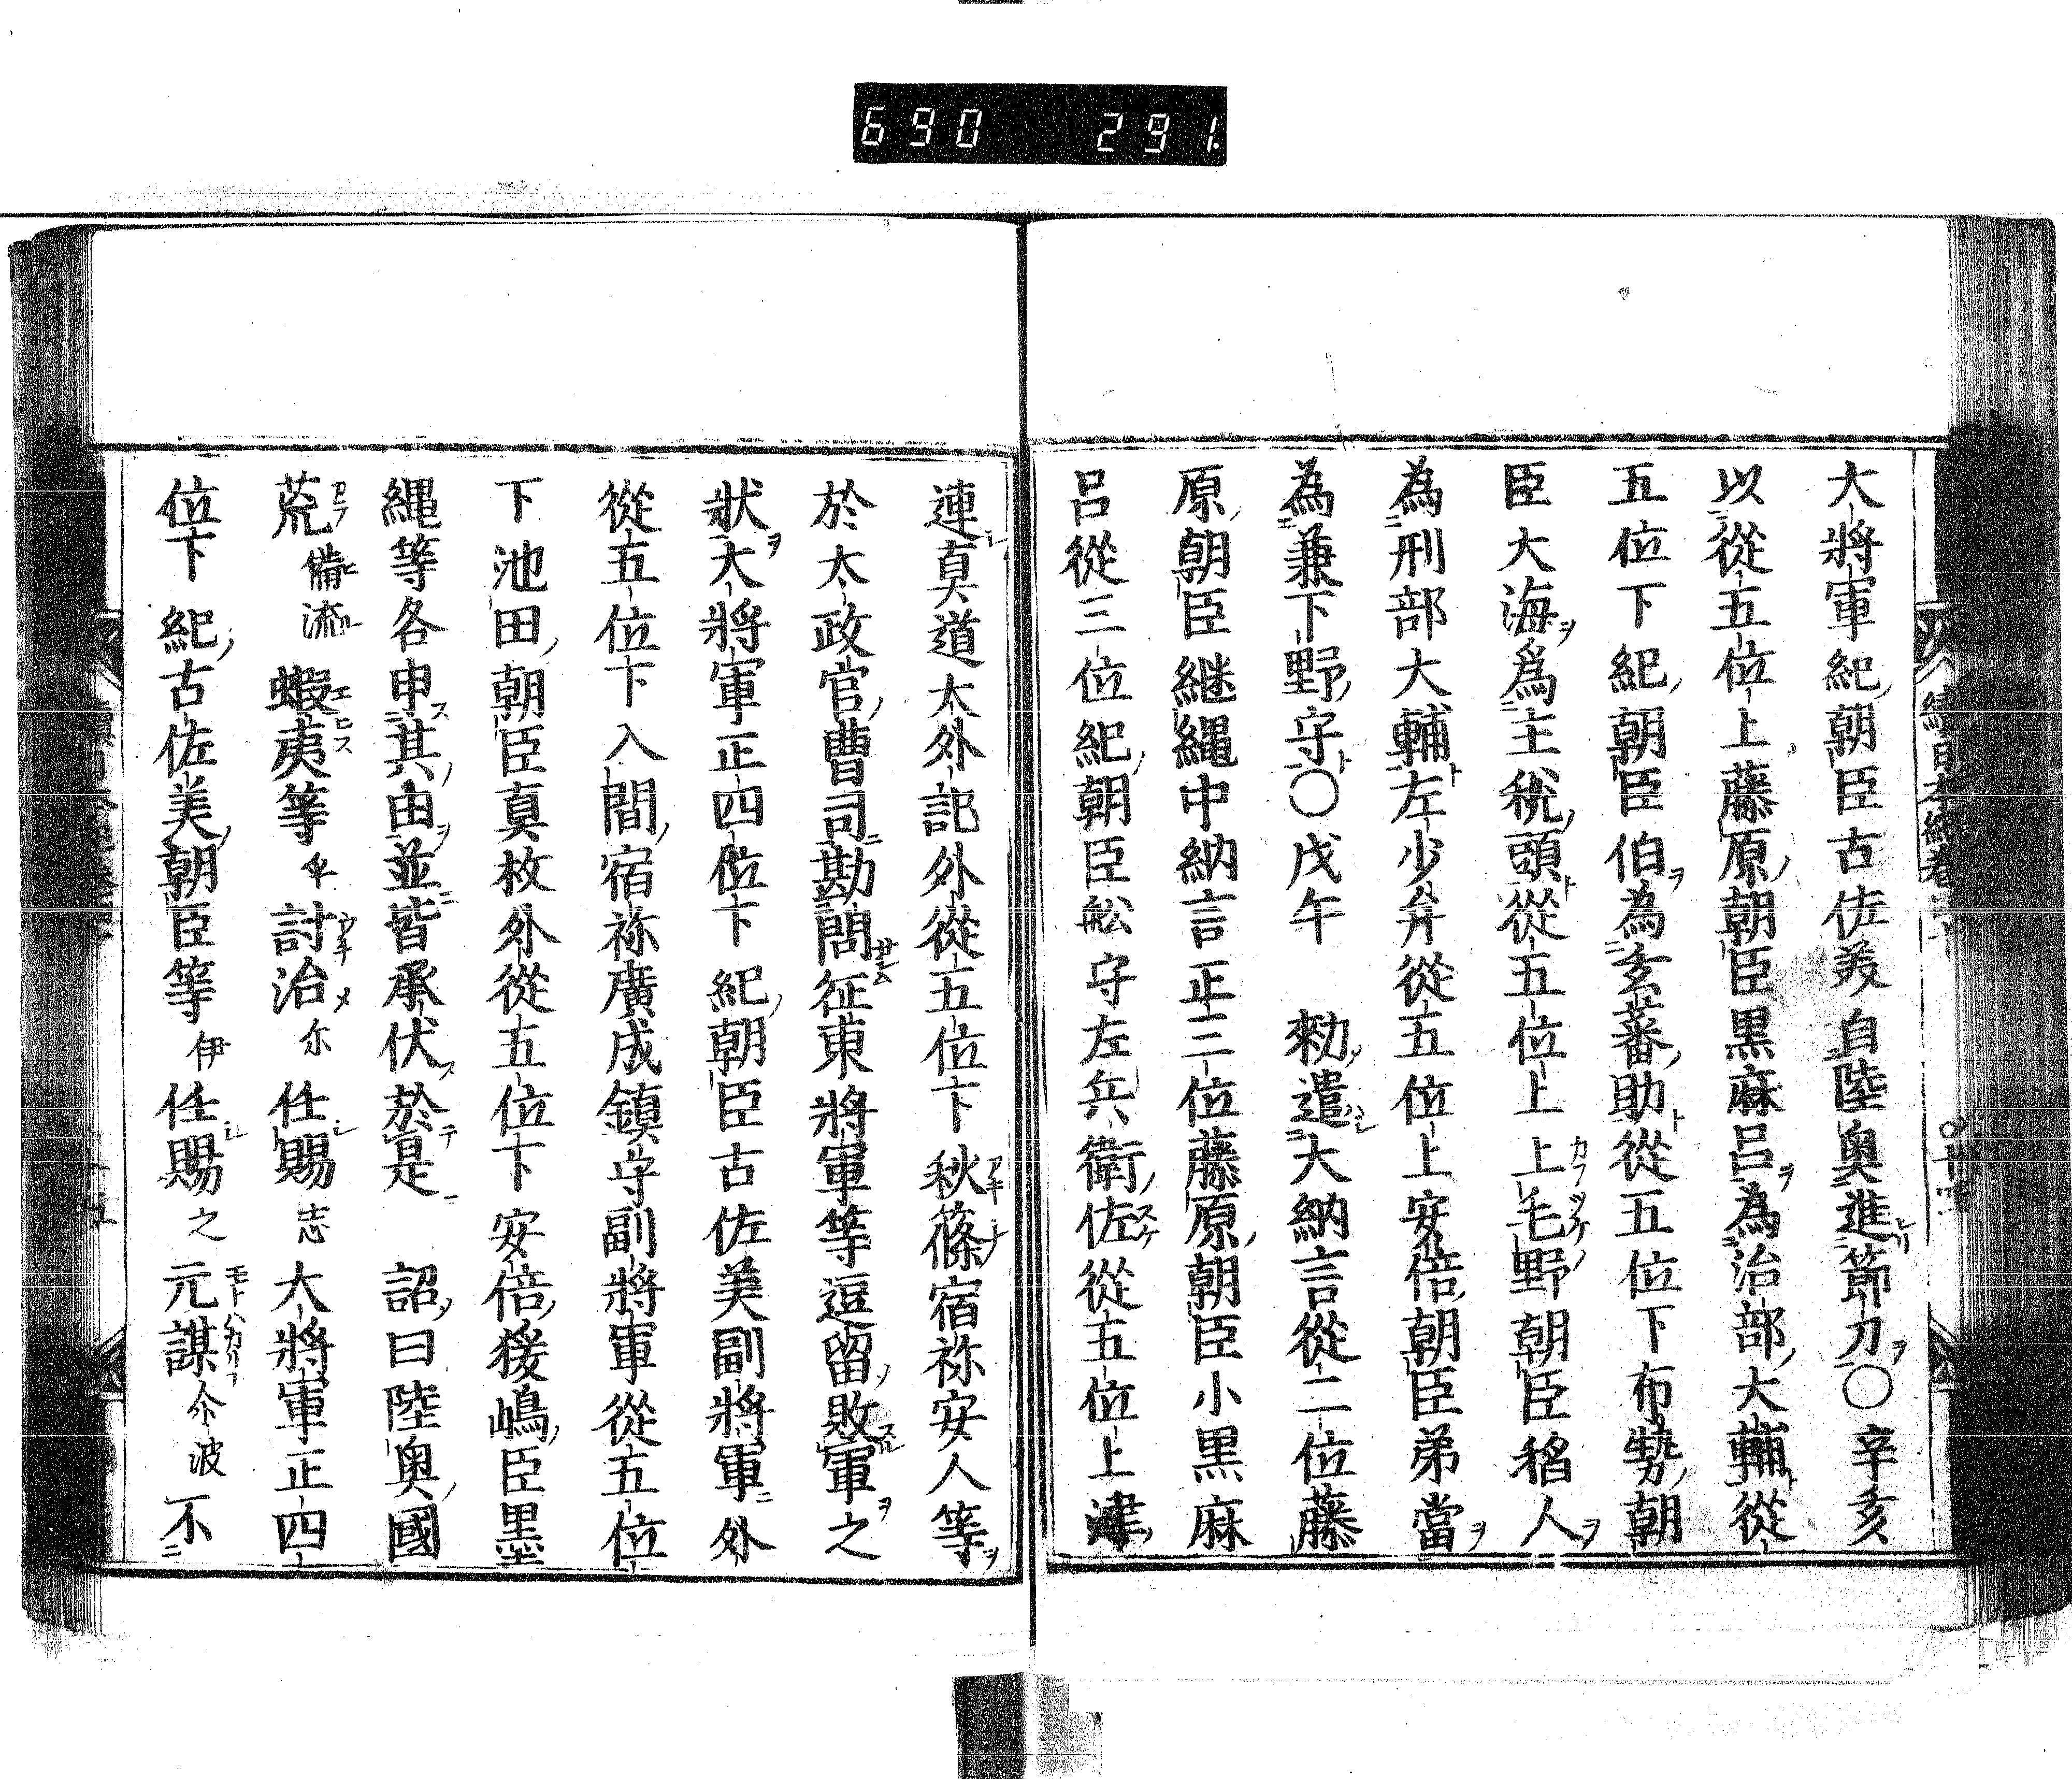 690 291
大將軍紀朝臣古佐美自陸奧進節刀〇辛亥
以從五位上藤原朝臣黑麻呂為治部大輔從
五位下紀朝臣伯為玄蕃助從五位下布勢朝
臣大海爲主稅頭從五位上上毛野朝臣稻人
為刑部大輔左少弁從五位上安倍朝臣弟當
為兼下野守〇戊午 勑遣大納言從二位藤
原朝臣継繩中納言正三位藤原朝臣小黑麻
呂從三位紀朝臣舩守左兵衛佐從五位上津
連真道太外記外從五位下秋篠宿祢安人等
於太政官曹司勘問征東將軍等逗留敗軍之
狀大將軍正四位下紀朝臣古佐美副將軍外
從五位下入間宿祢廣成鎮守副將軍從五位
下池田朝臣真枚外從五位下安倍猨嶋臣墨
繩等各申其由並皆承伏於是 詔曰陸奧國
荒備流蝦夷等乎討治尓任賜志大將軍正四
位下紀古佐美朝臣等伊任賜之元謀尒波不